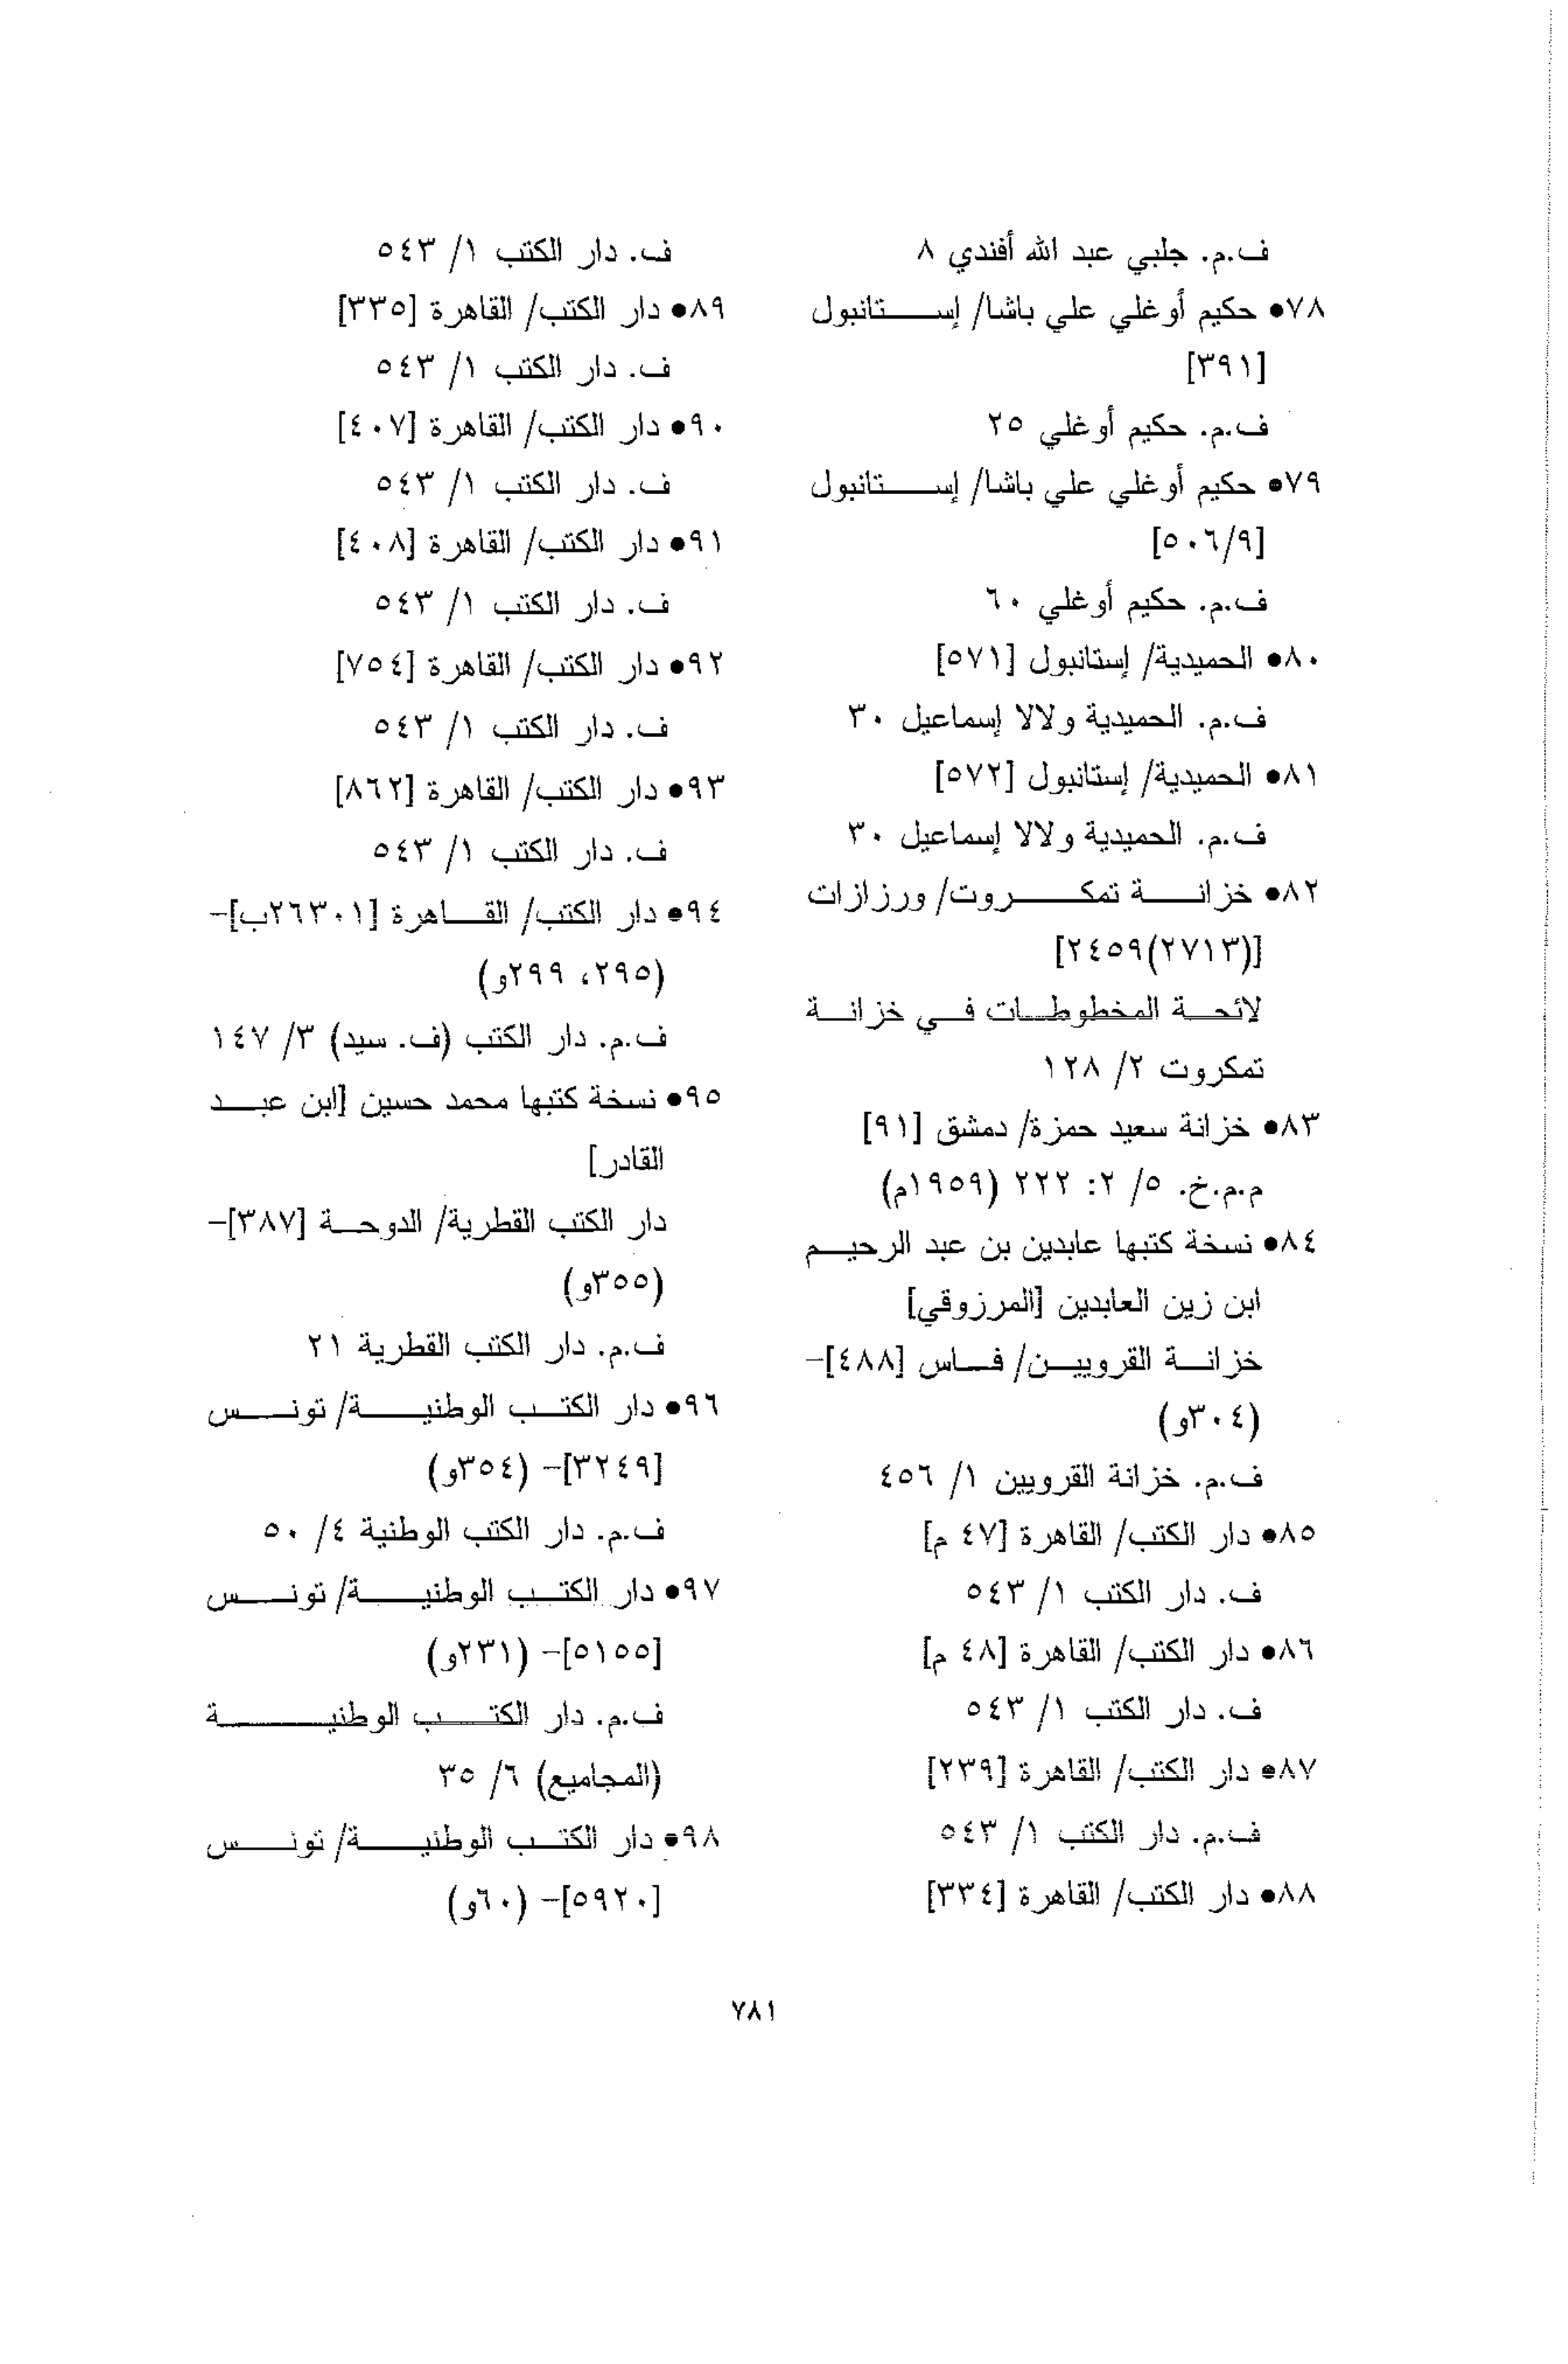 ف.م. جلبي عبد الله أفندي ٨
٧٨● حكيم أوغلي علي باشا/ إستانبول
[٣٩١]
ف.م. حكيم أوغلي ٢٥
٧٩● حكيم أوغلي علي باشا/ إستانبول
[٥٠٦/٩]
ف.م. حكيم أوغلي ٦٠
٨٠● الحميدية/ إستانبول [٥٧١]
ف.م. الحميدية ولالا إسماعيل ٣٠
٨١● الحميدية/ إستانبول [٥٧٢]
ف.م. الحميدية ولالا إسماعيل ٣٠
٨٢● خزانة تمكروت/ ورزازات
[(٢٧١٣)٢٤٥٩]
لائحة المخطوطات في خزانة
تمكروت ٢/ ١٢٨
٨٣● خزانة سعيد حمزة/ دمشق [٩١]
م.م.خ. ٥/ ٢: ٢٢٢ (١٩٥٩م)
٨٤● نسخة كتبها عابدين بن عبد الرحيم
ابن زين العابدين [المرزوقي]
خزانة القرويين/ فاس [٤٨٨]-
(٣٠٤و)
ف.م. خزانة القرويين ١/ ٤٥٦
٨٥● دار الكتب/ القاهرة [٤٧ م]
ف. دار الكتب ١/ ٥٤٣
٨٦● دار الكتب/ القاهرة [٤٨ م]
ف. دار الكتب ١/ ٥٤٣
٨٧● دار الكتب/ القاهرة [٢٣٩]
ف.م. دار الكتب ١/ ٥٤٣
٨٨● دار الكتب/ القاهرة [٣٣٤]
ف. دار الكتب ١/ ٥٤٣
٨٩● دار الكتب/ القاهرة [٣٣٥]
ف. دار الكتب ١/ ٥٤٣
٩٠● دار الكتب/ القاهرة [٤٠٧]
ف. دار الكتب ١/ ٥٤٣
٩١● دار الكتب/ القاهرة [٤٠٨]
ف. دار الكتب ١/ ٥٤٣
٩٢● دار الكتب/ القاهرة [٧٥٤]
ف. دار الكتب ١/ ٥٤٣
٩٣● دار الكتب/ القاهرة [٨٦٢]
ف. دار الكتب ١/ ٥٤٣
٩٤● دار الكتب/ القاهرة [٢٦٣٠١ب]-
(٢٩٥، ٢٩٩و)
ف.م. دار الكتب (ف. سيد) ٣/ ١٤٧
٩٥● نسخة كتبها محمد حسين [ابن عبد
القادر]
دار الكتب القطرية/ الدوحة [٣٨٧]-
(٣٥٥و)
ف.م. دار الكتب القطرية ٢١
٩٦● دار الكتب الوطنية/ تونس
[٣٢٤٩]- (٣٥٤و)
ف.م. دار الكتب الوطنية ٤/ ٥٠
٩٧● دار الكتب الوطنية/ تونس
[٥١٥٥]- (٢٣١و)
ف.م. دار الكتب الوطنية
(المجاميع) ٦/ ٣٥
٩٨● دار الكتب الوطنية/ تونس
[٥٩٢٠]- (٦٠و)
٧٨١